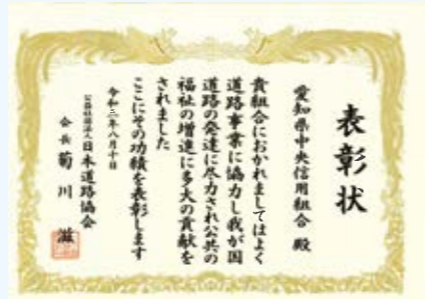 表彰状
愛知県中央信用組合 殿
貴組合におかれましてはよく
道路事業に協力し我が国
道路の発達に尽力され公共の
福祉の増進に多大の貢献を
されました
ここにその功績を表彰します
令和三年八月十日
公益社団法人日本道路協会
会長 菊川 滋